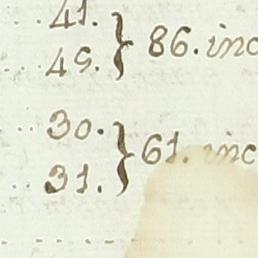 41.
45. } 86. inc
30.
31. } 61. inc